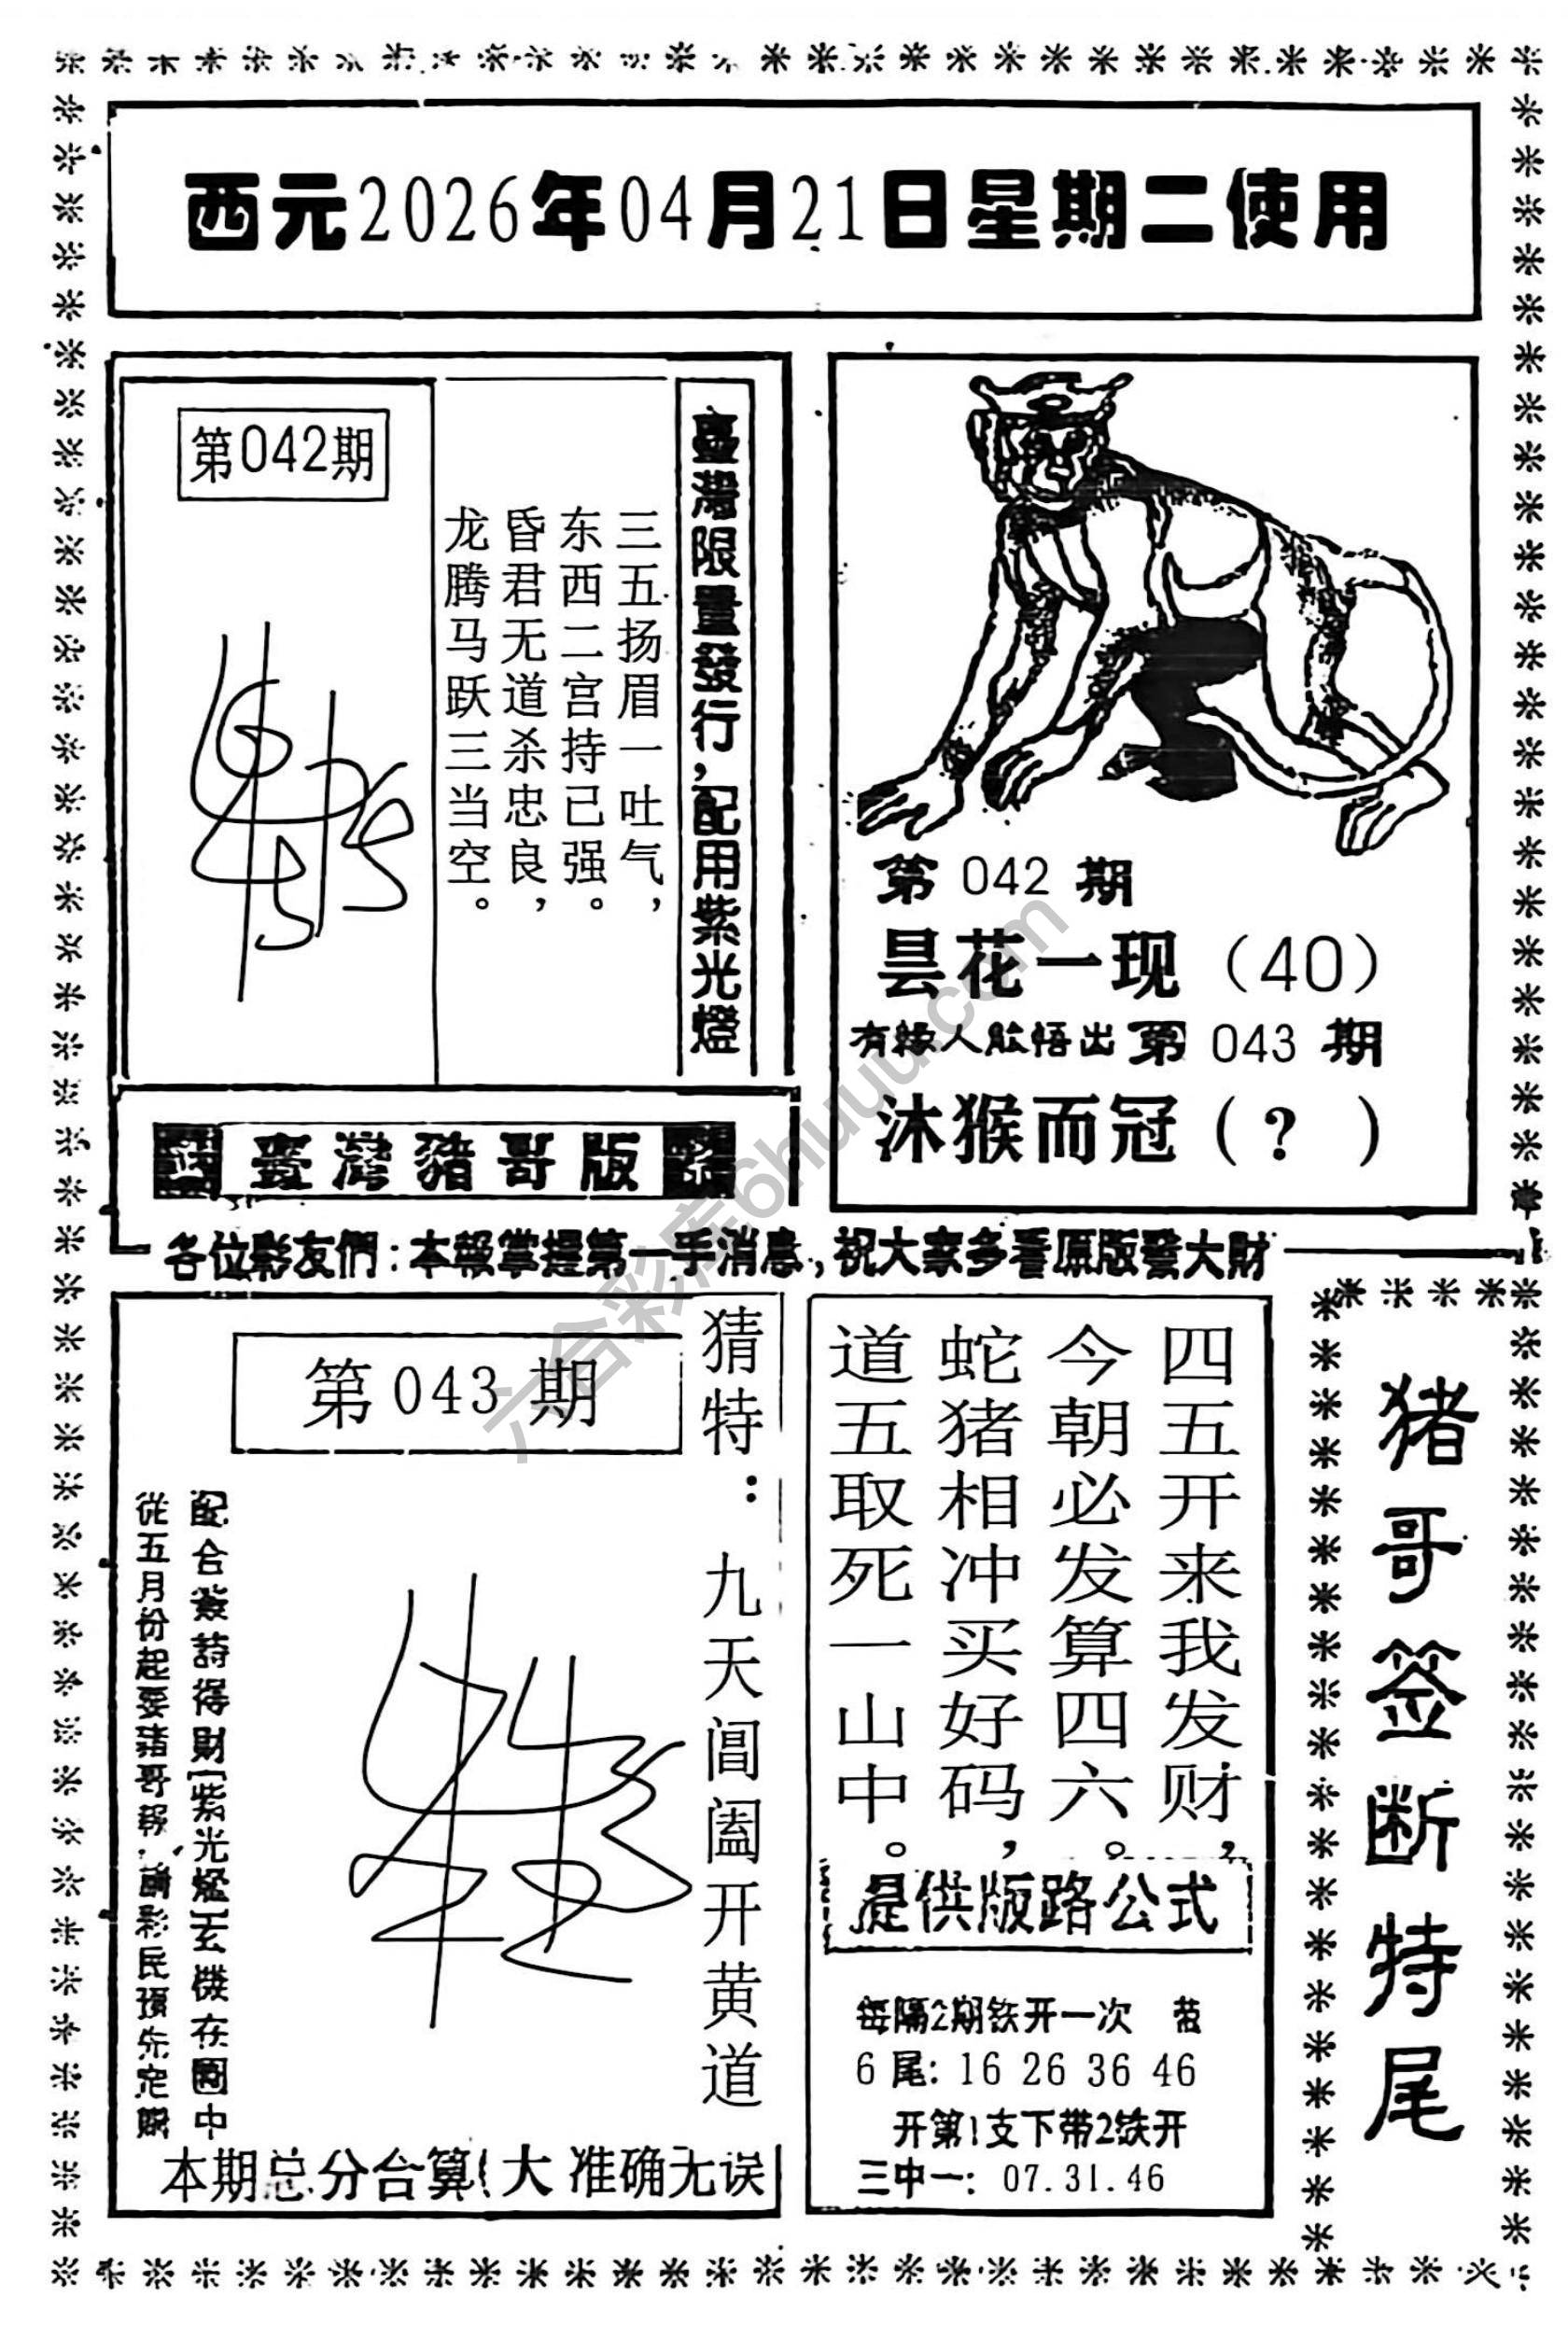 西元2026年04月21日星期二使用
第042期
臺灣限量發行,配用紫光燈
三五扬眉一吐气，
东西二宫持已强。
昏君无道杀忠良，
龙腾马跃三当空。
臺灣豬哥版
第 042 期
昙花一现（40）
有緣人能悟出第 043 期
沐猴而冠（？）
各位彩友們:本報掌握第一手消息,祝大家多看原版發大財
第043期
猜特：九天阊阖开黄道
配合簽詩得財[紫光燈]玄機在圖中
從五月份起要豬哥報,請彩民預先定購
本期总分合算(大 准确无误
四五开来我发财，
今朝必发算四六。
蛇猪相冲买好码，
道五取死一山中。
提供版路公式
每隔2期铁开一次
6尾: 16 26 36 46
开第1支下带2铁开
三中一: 07.31.46
猪哥签断特尾
六合彩库6huuu.com